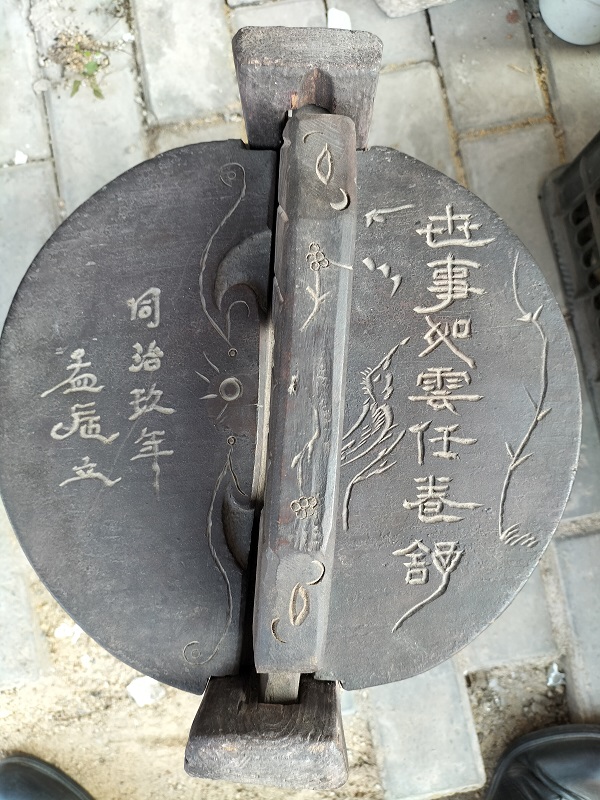 世事如雲任卷舒
同治玖年
孟 立